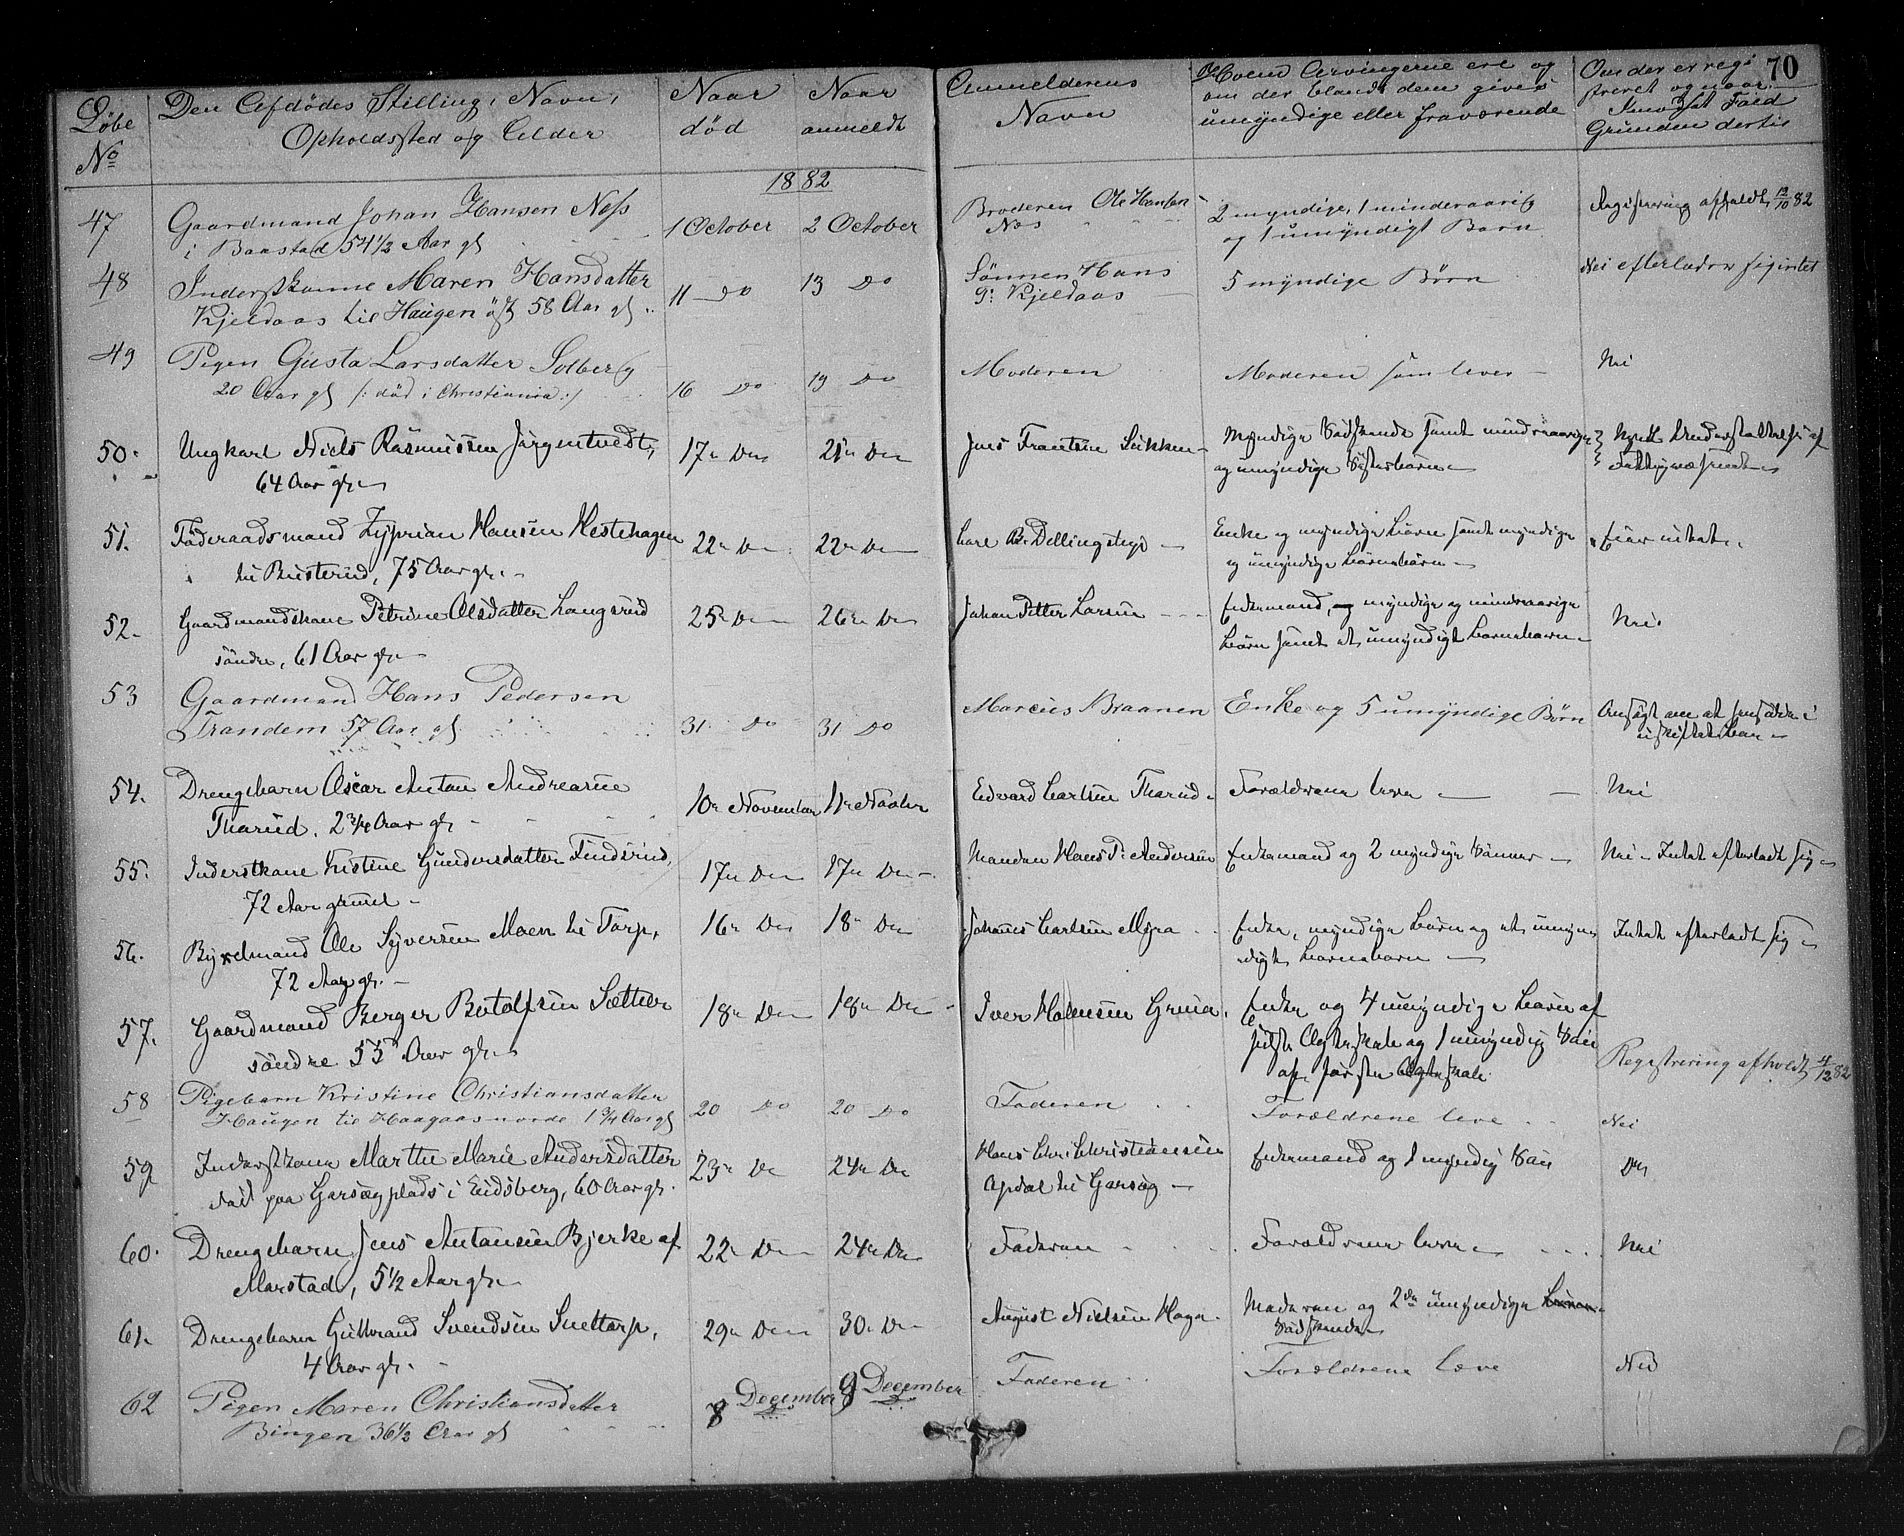 70
Løbe No
Den Afdødes Stilling, Navn,
Opholdssted og Alder
Naar død
Naar anmeldt
Anmelderens Navn
Hvem Arvingerne ere og
om der blandt dem gives
umyndige eller fraværende
Om der er regi
streret og naar.
I modsat Fald
Grunden dertil
1882
47 Gaardmand Johan Hansen Næss 1 October 2 October Broderen Ole Hansen 2 myndige, 1 minderaarig Registrering afholdt 12/10 82
i Baastad 54 1/2 Aar gl Næs og 1 umyndigt Barn
48 Inderstkonne Maren Hansdatter 11 Do 13 Do Sønnen Hans 5 myndige Børn Nei efterlader sig intet
Kjeldaas til Haugen øst 58 Aar gl. P. Kjeldaas
49 Pigen Gusta Larsdatter Solberg Moderen Moderen som lever Nei
20 Aar gl /: død i Christiania :/ 16 Do 19 Do
50. Ungkarl Niels Rasmussen Jørgentvedt, 17de Do 21de Do Jens Frantsen Myndige Sødskende samt mindreaarige
64 Aar gl. og umyndige Søsterbørn
51. Føderaadsmand Zyprian Hansen Hestehagen 22de Do 22de Do Carl B. Dellingstugi Enke og myndige Børn samt myndige Eier intet.
til Busterud, 75 Aar gl. og umyndige Barnebørn
52. Gaardmandskone Petrine Olsdatter Langsrud 25de Do 26de Do Johan Petter Larsen Enkemand, og myndige og mindreaarige Nei.
søndre, 61 Aar gl. Børn samt et umyndigt Barnebarn
53 Gaardmand Hans Pedersen Marcus Braanen Enke og 5 umyndige Børn Ansøgt om at hensidde i
Trandem 57 Aar gl 31 Do 31 Do uskiftet Bo
54. Drengebarn Oscar Anton Andreasen 10de November 11te Novbr Edvard Carlsen Tharud Forældrene leve Nei
Tharud. 2 3/4 Aar gl
55. Inderstkone Kistine Gundersdatter Findsrud, 17de Do 17de Do Manden Hans P. Andersen Enkemand og 2 myndige Sønner Nei - Intet efterladt sig
72 Aar gammel
56. Bygselmand Ole Syversen Moen til Torp, 16de Do 18de Do Johannes Carlsen Myra Enke, myndige Børn og et umyn- Intet efterladt sig
72 Aar gl. digt Barnebarn
57. Gaardmand Berger Botolfsen Sætter 18de Do 18de Do Iver Halvsen Grua. Enke og 4 umyndige Børn af
søndre 55 Aar gl. sidste Ægteskab og 1 umyndig Søn
af første Ægteskab. Registrering afholdt 4/12 82
58 Pigebarn Kristine Christiansdatter 20 Do 20 Do Faderen Forældrene leve Nei
Haugen til Haagaas nordre 1 3/4 Aar gl
59 Inderstkone Marthe Marie Andersdatter 23de Do 24de Do Hans Chr. Christiansen Enkemand og 1 myndig Søn Do
død paa Garsegplads i Eidsberg, 60 Aar gl. Opdal til Garseg
60. Drengebarn Jens Antonsen Bjerke af 22de Do 24de Do Faderen Forældrene leve Nei
Morstad, 5 1/2 Aar gl.
61. Drengebarn Gulbrand Svendsen Snettorp, 29de Do 30de Do August Nielsen Haga Moderen og 2de umyndige
4 Aar gl. Sødskende
62 Pigen Maren Christiansdatter 8 December 9 December Faderen Forældrene leve Nei
Bingen 36 1/2 Aar gl